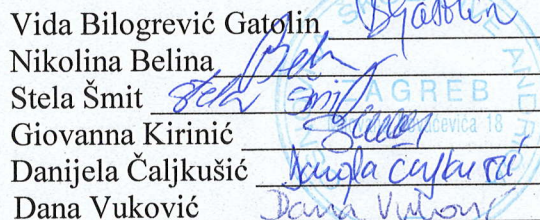 Vida Bilogrević Gatolin BGatolin
Nikolina Belina
Stela Šmit Stela Šmit
Giovanna Kirinić
Danijela Čaljkušić Danijela Čaljkušić
Dana Vuković Dana Vuković
ZAGREB
18